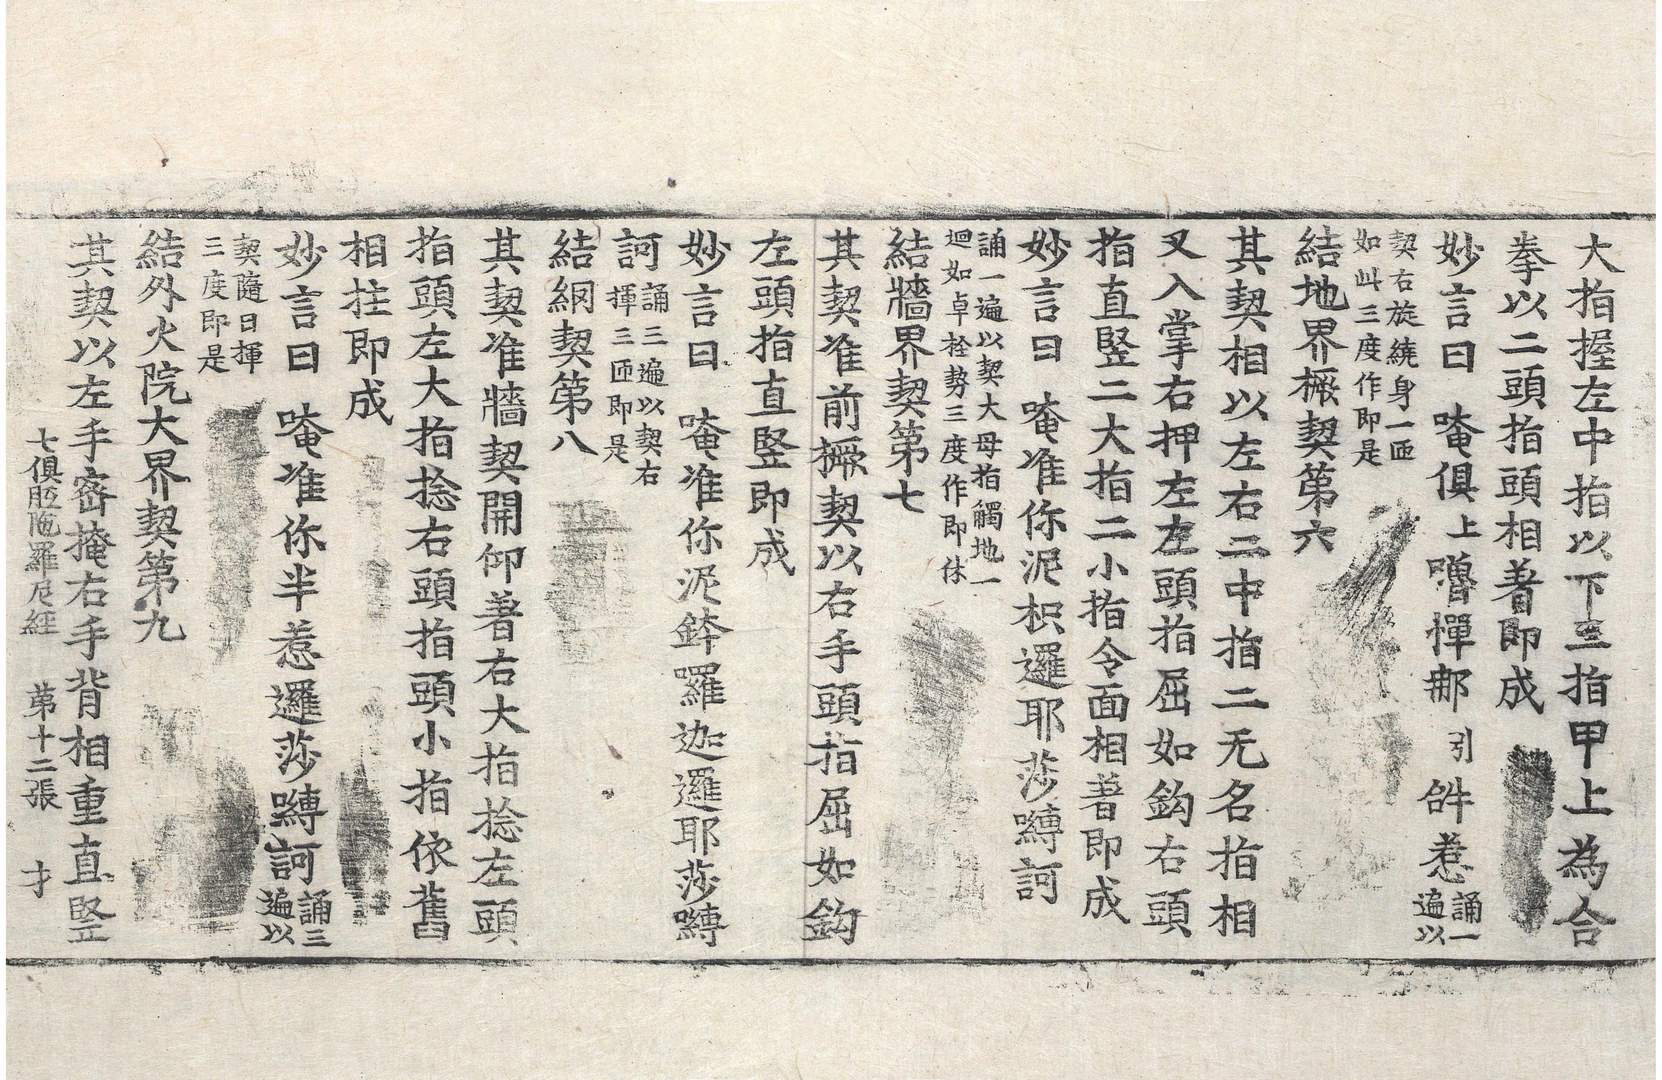 大指握左中指以下三指甲上為合
拳以二頭指頭相著即成
妙言曰 唵俱上嚕憚那引𤙖惹誦一遍以
契右旋繞身一匝如叫三度作即是
結地界橛契第六
其契相以左右二中指二无名指相
叉入掌右押左左頭指屈如鈎右頭
指直竪二大指二小指令面相著即成
妙言曰 唵准你泥枳邏耶莎嚩訶
誦一遍以契大母指觸地一迴如卓栓勢三度作即休
結牆界契第七
其契准前橛契以右手頭指屈如鈎
左頭指直竪即成
妙言曰 唵准你泥鉢羅迦邏耶莎嚩
訶誦三遍以契右揮三匝即是
結網契第八
其契准牆契開仰著右大指捻左頭
指頭左大指捻右頭指頭小指依舊
相拄即成
妙言曰 唵准你半惹邏莎嚩訶誦三遍以
契隨日揮三度即是
結外火院大界契第九
其契以左手密掩右手背相重直竪
七俱胝陁羅尼經 第十二張 才